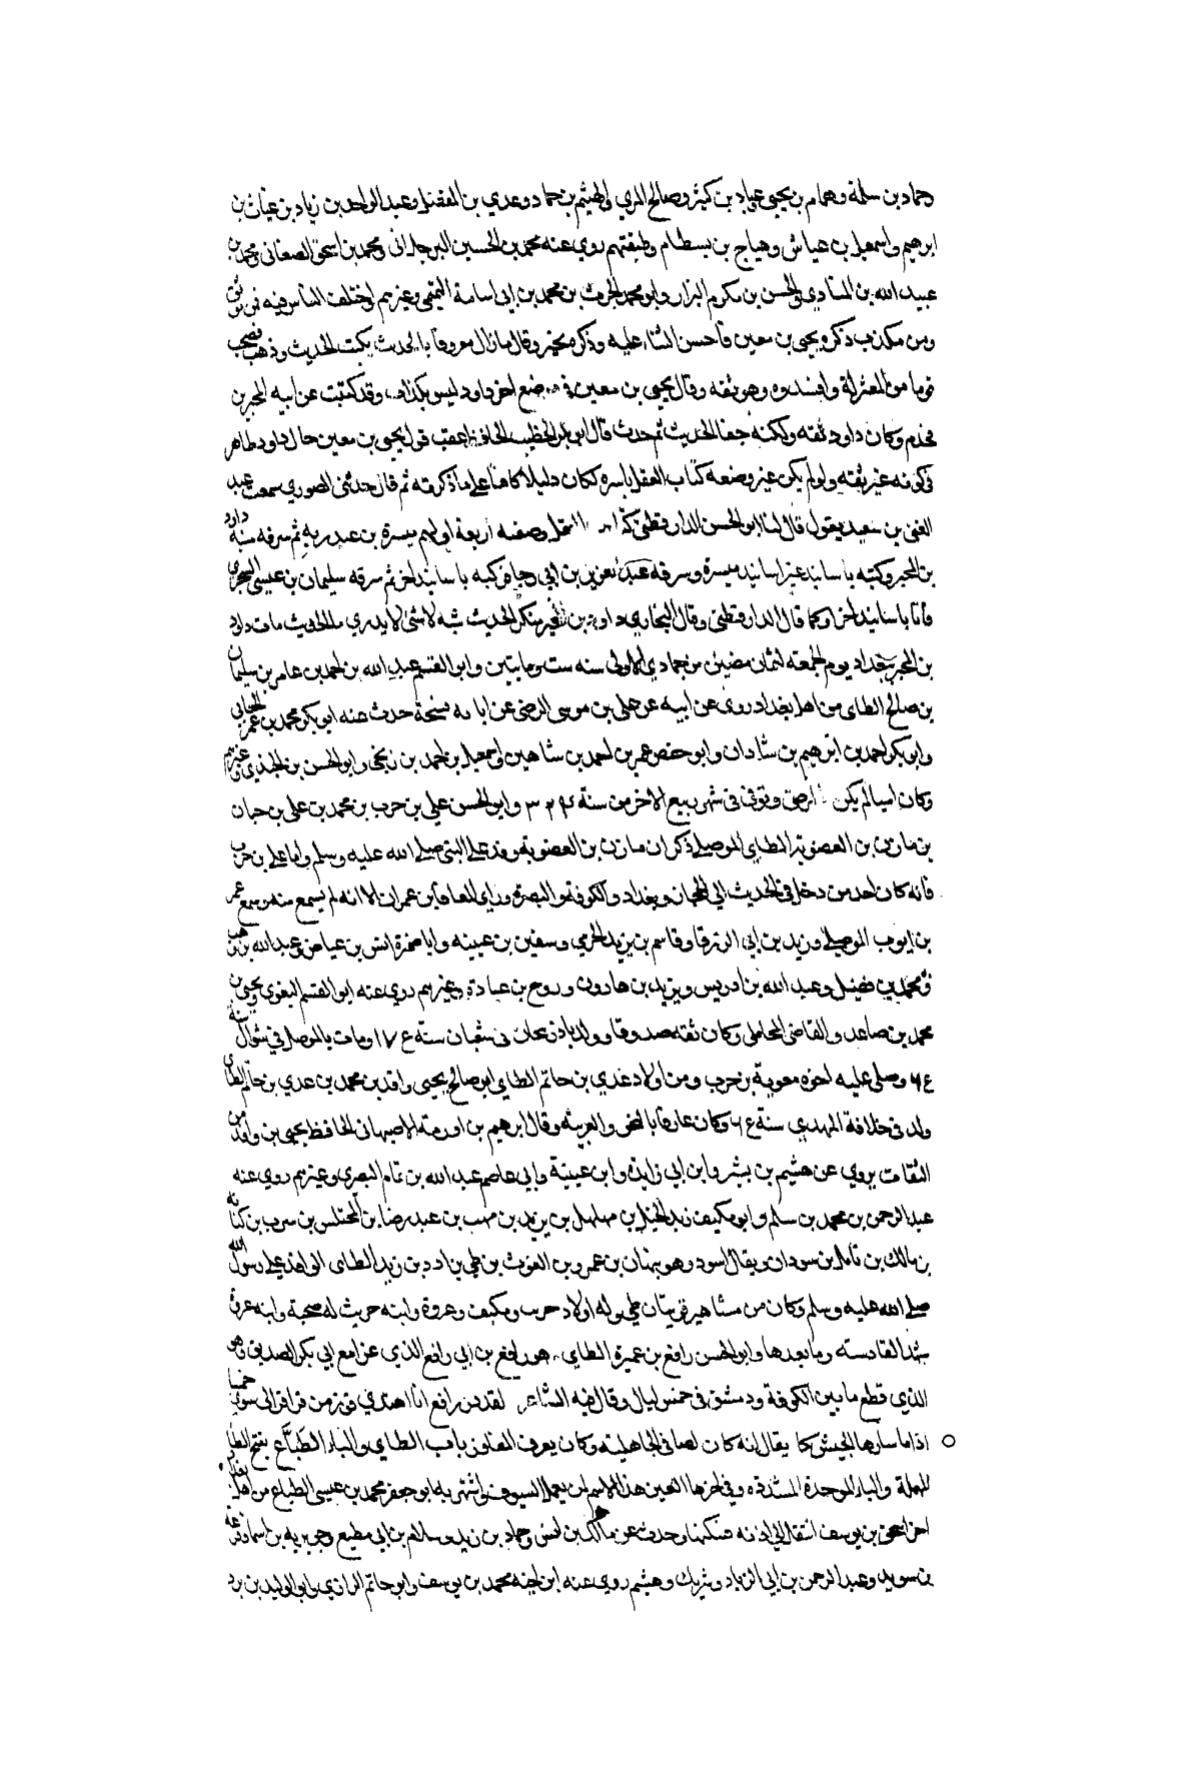 وحماد بن سلمة وهمام بن يحيى وعباد بن كثير وصالح المري والهيثم بن حماد وعدي بن الفضل وعبد الواحد بن زياد بن غياث بن
ابرهيم واسمعيل بن عياش وهياج بن بسطام وطبقتهم روي عنه محمد بن الحسين البرجلاني ومحمد بن اسحق الصغاني ومحمد بن
عبيد الله بن المنادي والحسن بن مكرم البزار وابو محمد الحرث بن محمد بن ابي اسامة التميمي وغيرهم واختلف الناس فيه فمن موثق
ومن مكذب ذكره يحيى بن معين فاحسن الثناء عليه وذكره بخير وقال ما زال معروفا بالحديث يكتب الحديث وذهب فصحب
قوما من المعتزلة وافسدوه وهو ثقه وقال يحيى بن معين في موضع اخر داود ليس بكذاب وقد كتبت عن ابيه المحبر بن
قحذم وكان داود ثقه ولكنه جفا الحديث ثم حدث قال ابو بكر الخطيب الحافظ عقب قول يحيى بن معين حال داود ظاهر
في كونه غير ثقه ولو لم يكن غير وضعه كتاب العقل باسره لكان دليلا كافيا على ما ذكرته ثم قال حدثني الصوري سمعت عبد
الغني بن سعيد يقول قال لنا ابو الحسن الدارقطني كتاب العقل وضعه اربعة اولهم ميسرة بن عبد ربه ثم سرقه منه داود
بن المحبر وركبه باسانيد غير اسانيد ميسرة وسرقه عبد العزيز بن ابي رجا فركبه باسانيد اخر ثم سرقه سليمان بن عيسى السجزي
فاتا باسانيد اخر او كما قال الدارقطني وقال البخاري داود بن المحبر منكر الحديث شبه لا شئ لا يدري ما الحديث مات داود
بن المحبر ببغداد يوم الجمعه لثمان مضين من جمادي الاولى سنه ست ومايتين وابو القسم عبد الله بن احمد بن عامر بن سليمان
بن صالح الطاي من اهل بغداد روي عن ابيه عن علي بن موسى الرضي عن ابايه نسخة حدث عنه ابو بكر محمد بن عمر الجعابي
وابو بكر احمد بن ابرهيم بن شاذان وابو حفص عمر بن احمد بن شاهين واسمعيل بن احمد بن زنجي وابو الحسن بن الجندي وغيرهم
وكان اميا لم يكن بالمرضي وتوفي في شهر ربيع الاخر من سنة ٣٢٤ وابو الحسن علي بن حرب بن محمد بن علي بن حبان
بن مازن بن الغضوبة الطاي الموصلي ذكر ان مازن بن الغضوبة وفد على النبي صلى الله عليه وسلم واما علي بن حرب
فانه كان احد من رحل في الحديث الى الحجاز وبغداد والكوفة والبصرة وراي المعافا بن عمران الا انه لم يسمع منه وسمع عمر
بن ايوب الموصلي وزيد بن ابي الزرقا وقاسم بن يزيد الجرمي وسفين بن عيينه وابا ضمرة انس بن عياض وعبد الله بن وهب
ومحمد بن فضيل وعبد الله بن ادريس ويزيد بن هارون وروح بن عبادة وغيرهم روي عنه ابو القسم البغوي يحيى بن
محمد بن صاعد والقاضي المحاملي وكان ثقه صدوقا وولد باذربيجان في شعبان سنة ١٧٤ ومات بالموصل في شوال سنة
٢٦٤ وصلى عليه اخوه معوية بن حرب ومن اولاد عدي بن حاتم الطاي ابو صالح يحيى بن واقد بن محمد بن عدي بن حاتم الطاي
ولد في خلافة المهدي سنة ١٦٤ وكان عارفا بالنحو والعربيه وقال ابرهيم بن اورمة الاصبهاني الحافظ يحيى بن واقد من
الثقات يروي عن هشيم بن بشير وابن ابي زايدة وابن عيينة وابي عاصم عبد الله بن تمام البصري وغيرهم روي عنه
عبد الرحمن بن محمد بن سلم وابو مكنف زيد الخيل بن مهلهل بن يزيد بن منهب بن عبد رضا بن المختلس بن سرب بن كنانه
بن مالك بن نابل بن سودان ويقال اسود وهو نبهان بن عمرو بن الغوث بن طي بن ادد بن زيد الطاى الوافد على رسول الله
صلى الله عليه وسلم وكان من مشاهير فرسان طي وله اولاد حرب ومكنف وعروة وابنه حريث له صحبة وابنه عروة
شهد القادسيه وما بعدها وابو الحسن رافع بن عميرة الطاي هو رافع بن ابي رافع الذي غزا مع ابي بكر الصديق وهو
الذي قطع ما بين الكوفة ودمشق في خمس ليال وقال فيه الشاعر لقد در رافع انا اهتدي فوز من قراقر الى سوى خمسا
اذا ما سارها الجيش بكا يقال انه كان لصا في الجاهلية وكان يعرف المفاوز باب الطاي والباء الطَّبَّاع بفتح الطا
المهملة والباء الموحدة المشددة وفي اخرها العين هذا الاسم لمن يعمل السيوف واشتهر به ابو جعفر محمد بن عيسى الطباع من اهل بغداد
اخو اسحق بن يوسف انتقل الى اذنه فسكنها وحدث عن مالك بن انس وحماد بن زيد وسلام بن ابي مطيع وجويرية بن اسما وقزعة
بن سويد وعبد الرحمن بن ابي الزناد وشريك وهشيم روي عنه ابن اخيه محمد بن يوسف وابو حاتم الرازي وابو الوليد بن برد